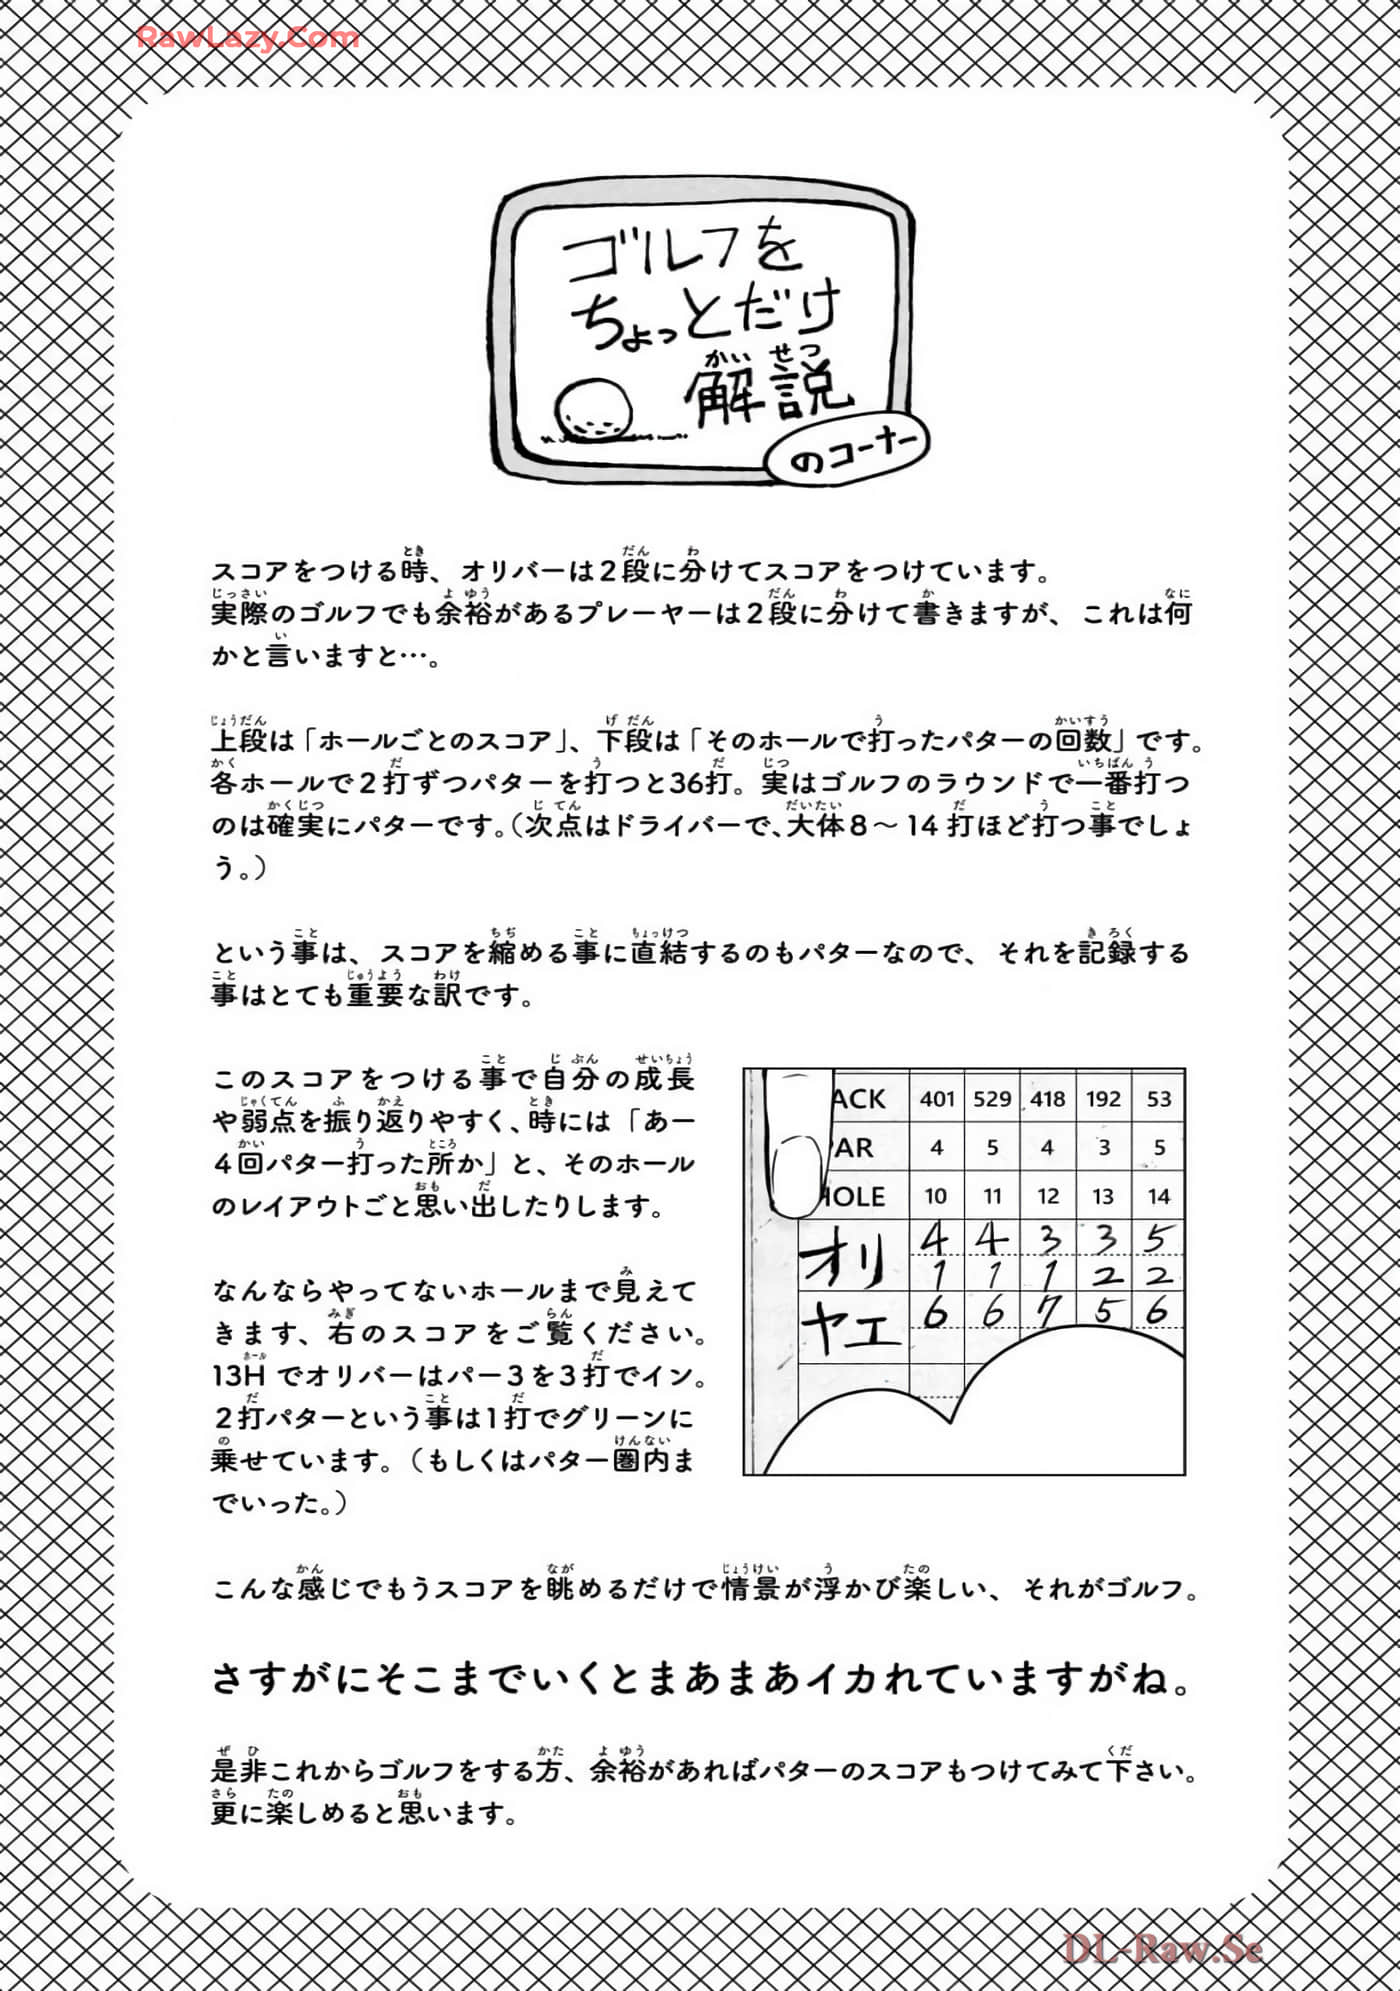 RawLazy.Com
ゴルフを
ちょっとだけ
解説
かいせつ
のコーナー
スコアをつける時、オリバーは2段に分けてスコアをつけています。
実際のゴルフでも余裕があるプレーヤーは2段に分けて書きますが、これは何
かと言いますと…。
上段は「ホールごとのスコア」、下段は「そのホールで打ったパターの回数」です。
各ホールで2打ずつパターを打つと36打。実はゴルフのラウンドで一番打つ
のは確実にパターです。（次点はドライバーで、大体8～14打ほど打つ事でしょ
う。）
という事は、スコアを縮める事に直結するのもパターなので、それを記録する
事はとても重要な訳です。
このスコアをつける事で自分の成長
や弱点を振り返りやすく、時には「あー
4回パター打った所か」と、そのホール
のレイアウトごと思い出したりします。
なんならやってないホールまで見えて
きます、右のスコアをご覧ください。
13H でオリバーはパー3を3打でイン。
2打パターという事は1打でグリーンに
乗せています。（もしくはパター圏内ま
でいった。）
ACK 401 529 418 192 53
AR 4 5 4 3 5
HOLE 10 11 12 13 14
オリ 4 4 3 3 5
1 1 1 2 2
ヤエ 6 6 7 5 6
こんな感じでもうスコアを眺めるだけで情景が浮かび楽しい、それがゴルフ。
さすがにそこまでいくとまあまあイカれていますがね。
是非これからゴルフをする方、余裕があればパターのスコアもつけてみて下さい。
更に楽しめると思います。
DL-Raw.Se